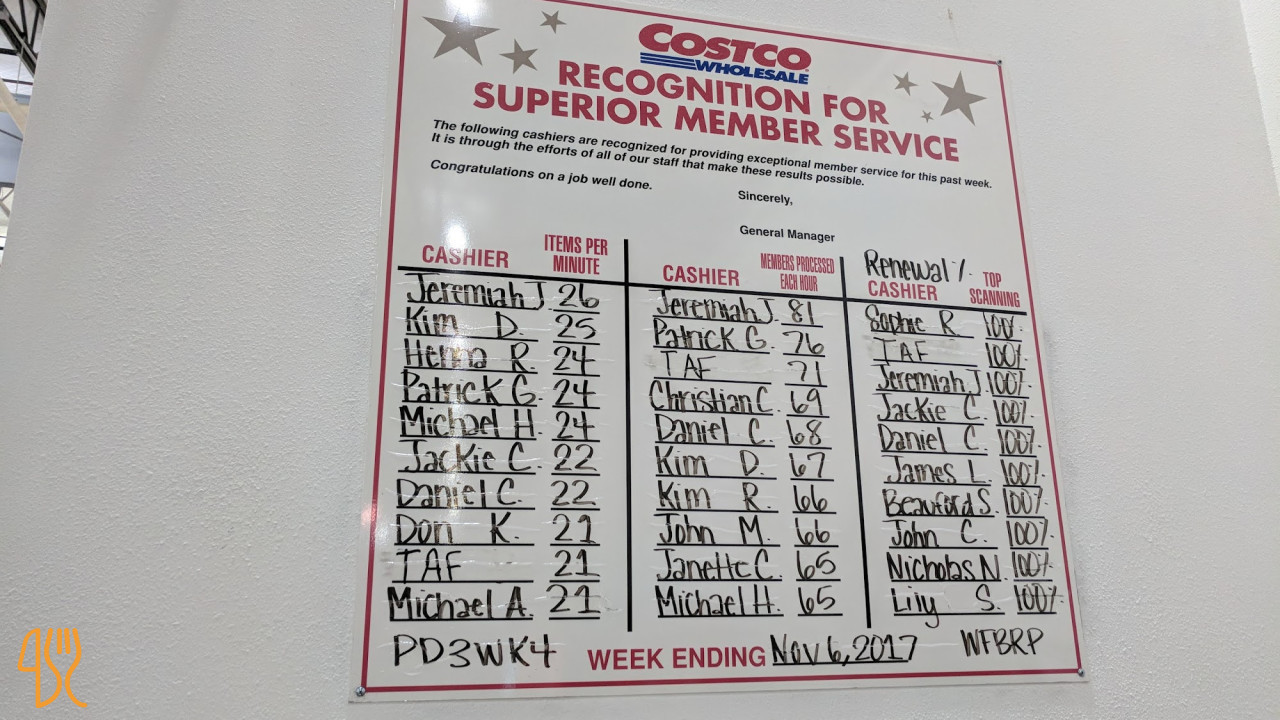 COSTCO
WHOLESALE
RECOGNITION FOR
SUPERIOR MEMBER SERVICE
The following cashiers are recognized for providing exceptional member service for this past week.
It is through the efforts of all of our staff that make these results possible.
Congratulations on a job well done.
Sincerely,
General Manager
CASHIER ITEMS PER MINUTE
Jeremiah J. 26
Kim D. 25
Henna R. 24
Patrick G. 24
Michael H. 24
Jackie C. 22
Daniel C. 22
Don K. 21
TAF 21
Michael A. 21
CASHIER MEMBERS PROCESSED EACH HOUR
Jeremiah J. 81
Patrick G. 76
TAF 71
Christian C. 69
Daniel C. 68
Kim D. 67
Kim R. 66
John M. 66
Janette C. 65
Michael H. 65
Renewal %
CASHIER TOP SCANNING
Sophie R. 100%
TAF 100%
Jeremiah J. 100%
Jackie C. 100%
Daniel C. 100%
James L. 100%
Beauford S. 100%
John C. 100%
Nicholas N. 100%
Lily S. 100%
PD3WK4 WEEK ENDING Nov 6, 2017 WFBRP